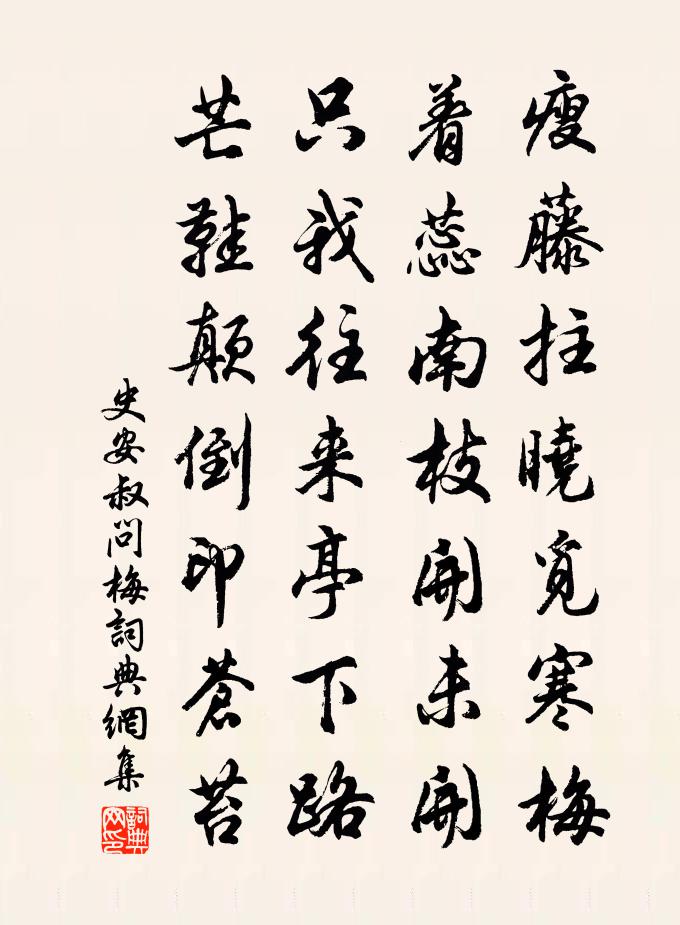 瘦藤拄曉覓寒梅
着蕊南枝開未開
只我往来亭下路
芒鞋顛倒印蒼苔
史安叔問梅詞典網集
詞典网印